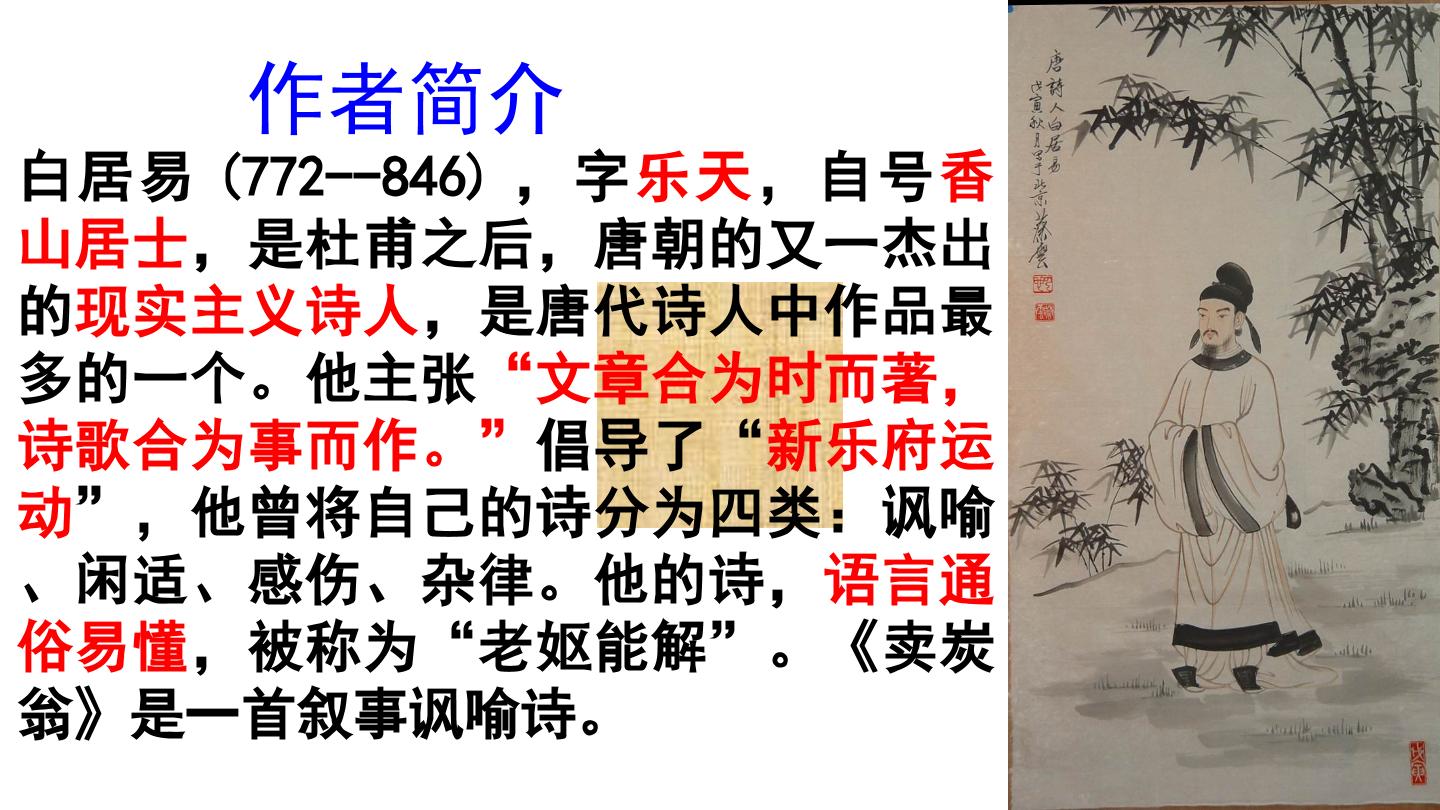 作者简介
白居易（772--846），字乐天，自号香
山居士，是杜甫之后，唐朝的又一杰出
的现实主义诗人，是唐代诗人中作品最
多的一个。他主张“文章合为时而著，
诗歌合为事而作。”倡导了“新乐府运
动”，他曾将自己的诗分为四类：讽喻
、闲适、感伤、杂律。他的诗，语言通
俗易懂，被称为“老妪能解”。《卖炭
翁》是一首叙事讽喻诗。
唐詩人白居易
戊寅秋月写于北京